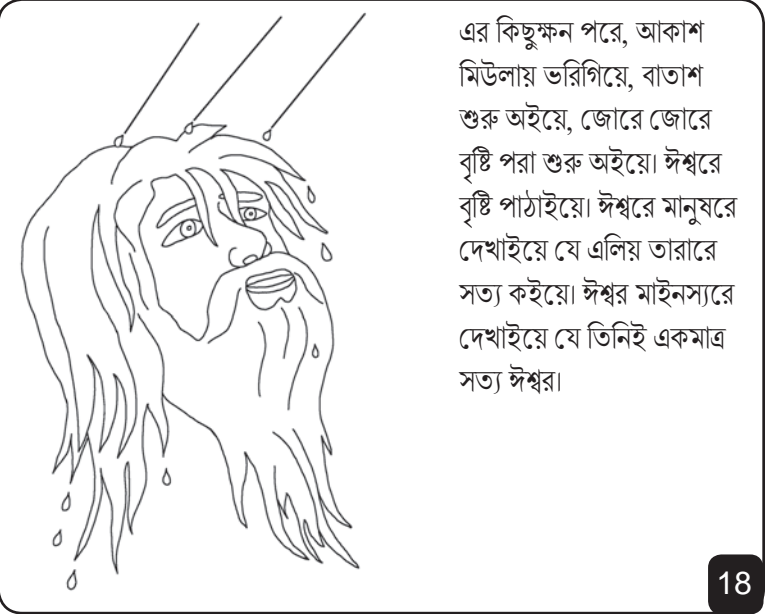 এর কিছুক্ষন পরে, আকাশ
মিউলায় ভরিগিয়ে, বাতাশ
শুরু অইয়ে, জোরে জোরে
বৃষ্টি পরা শুরু অইয়ে। ঈশ্বরে
বৃষ্টি পাঠাইয়ে। ঈশ্বরে মানুষরে
দেখাইয়ে যে এলিয় তারারে
সত্য কইয়ে। ঈশ্বর মাইনস্যরে
দেখাইয়ে যে তিনিই একমাত্র
সত্য ঈশ্বর।
18